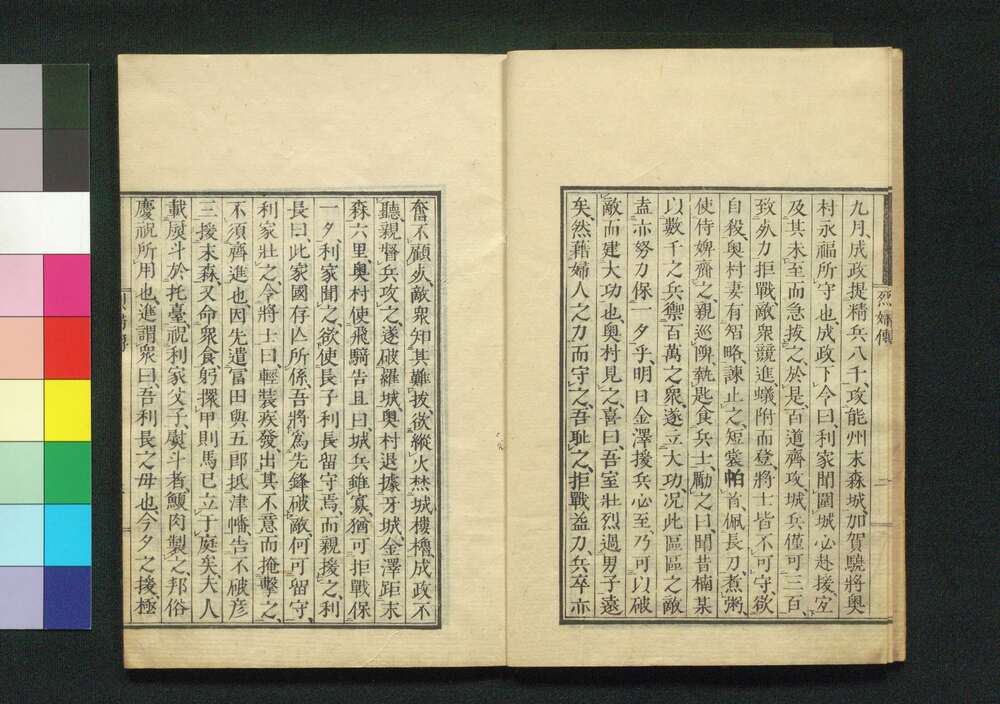 九月、成政提精兵八千、攻能州末森城、加賀驍將奧
村永福所守也、成政下令曰、利家聞圍城必赴援、宜
及其未至而急拔之、於是、百道齊攻、城兵僅可三百、
致死力拒戰、敵衆競進、蟻附而登、將士皆不可守、欲
自殺、奧村妻有智略、諫止之、短裳帕首、佩長刀、煮粥、
使侍婢齎之、親巡陴、執匙食兵士、勵之曰、聞昔楠某
以數千之兵、禦百萬之衆、遂立大功、况此區區之敵、
盍亦努力保一夕乎、明日金澤援兵必至、乃可以破
敵而建大功也、奧村見之、喜曰、吾室壯烈過男子遠
矣、然藉婦人之力而守之、吾耻之、拒戰益力、兵卒亦
烈婦傳
二
奮不顧死、敵衆知其難拔、欲縱火焚城樓櫓、成政不
聽、親督兵攻之、遂破羅城、奧村退據牙城、金澤距末
森六里、奧村使飛騎告且曰、城兵雖寡、猶可拒戰保
一夕、利家聞之、欲使長子利長留守焉、而親援之、利
長曰、此家國存亾所係、吾將爲先鋒破敵、何可留守、
利家壯之、令將士曰、輕裝疾發、出其不意而掩擊之、
不須齊進也、因先遣冨田與五郎抵津幡、告不破彦
三援末森、又命衆食、躬擐甲、則馬已立于庭矣、夫人
載熨斗於托臺、祝利家父子、熨斗者、鰒肉製之、邦俗
慶祝所用也、進謂衆曰、吾利長之母也、今夕之援、極